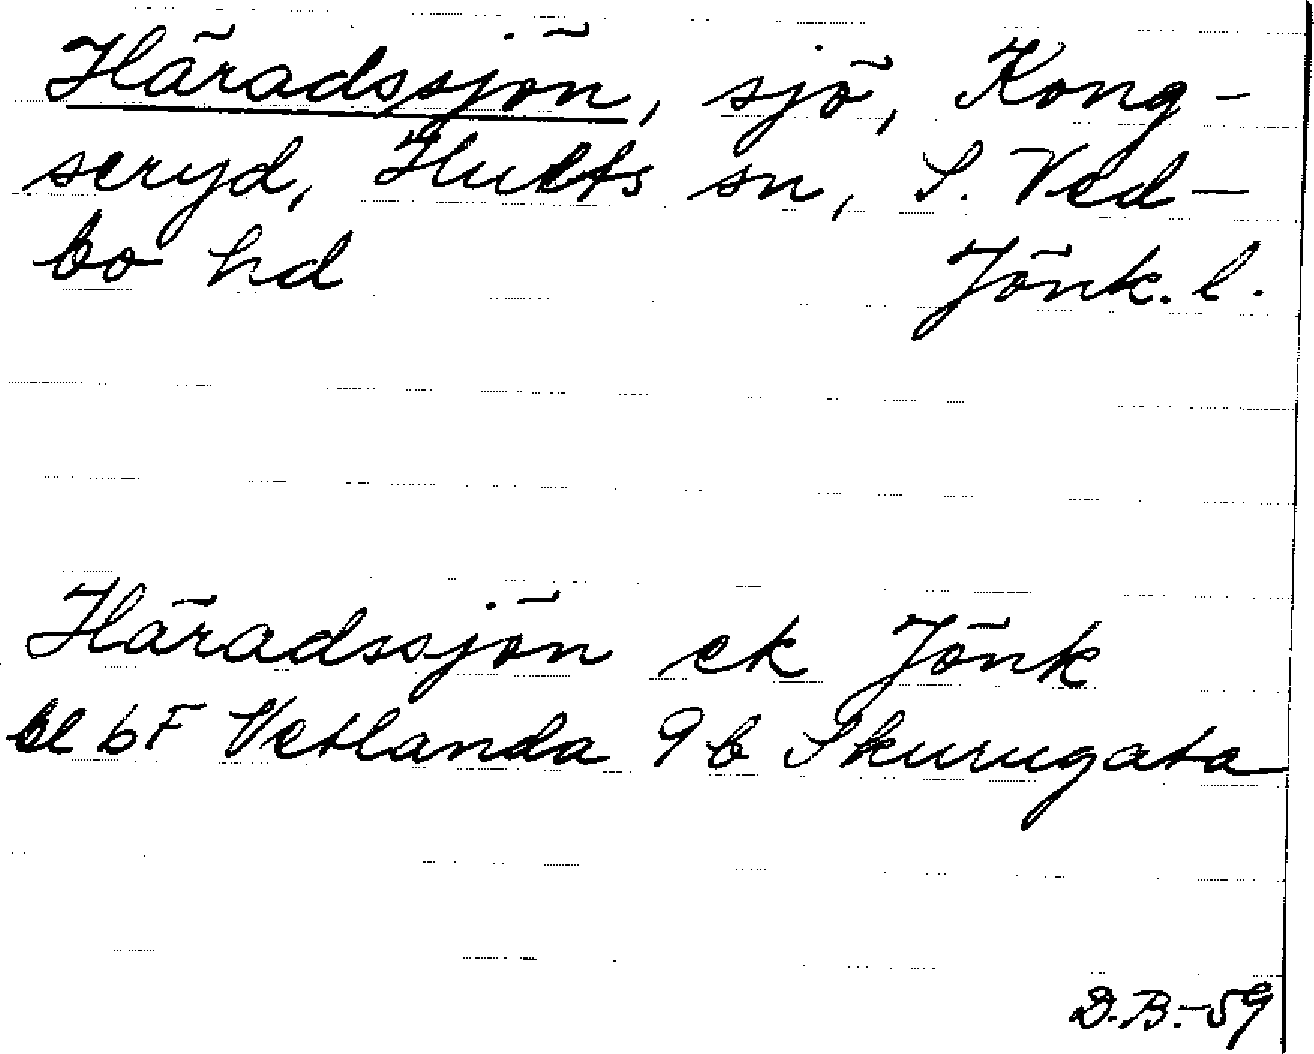 Häradssjön, sjö, Kong-
seryd, Hults sn, S. Ved-
bo hd Jönk. l.
Häradssjön ek Jönk
bl 6F Vetlanda 9b Skurugata
D.B.-59